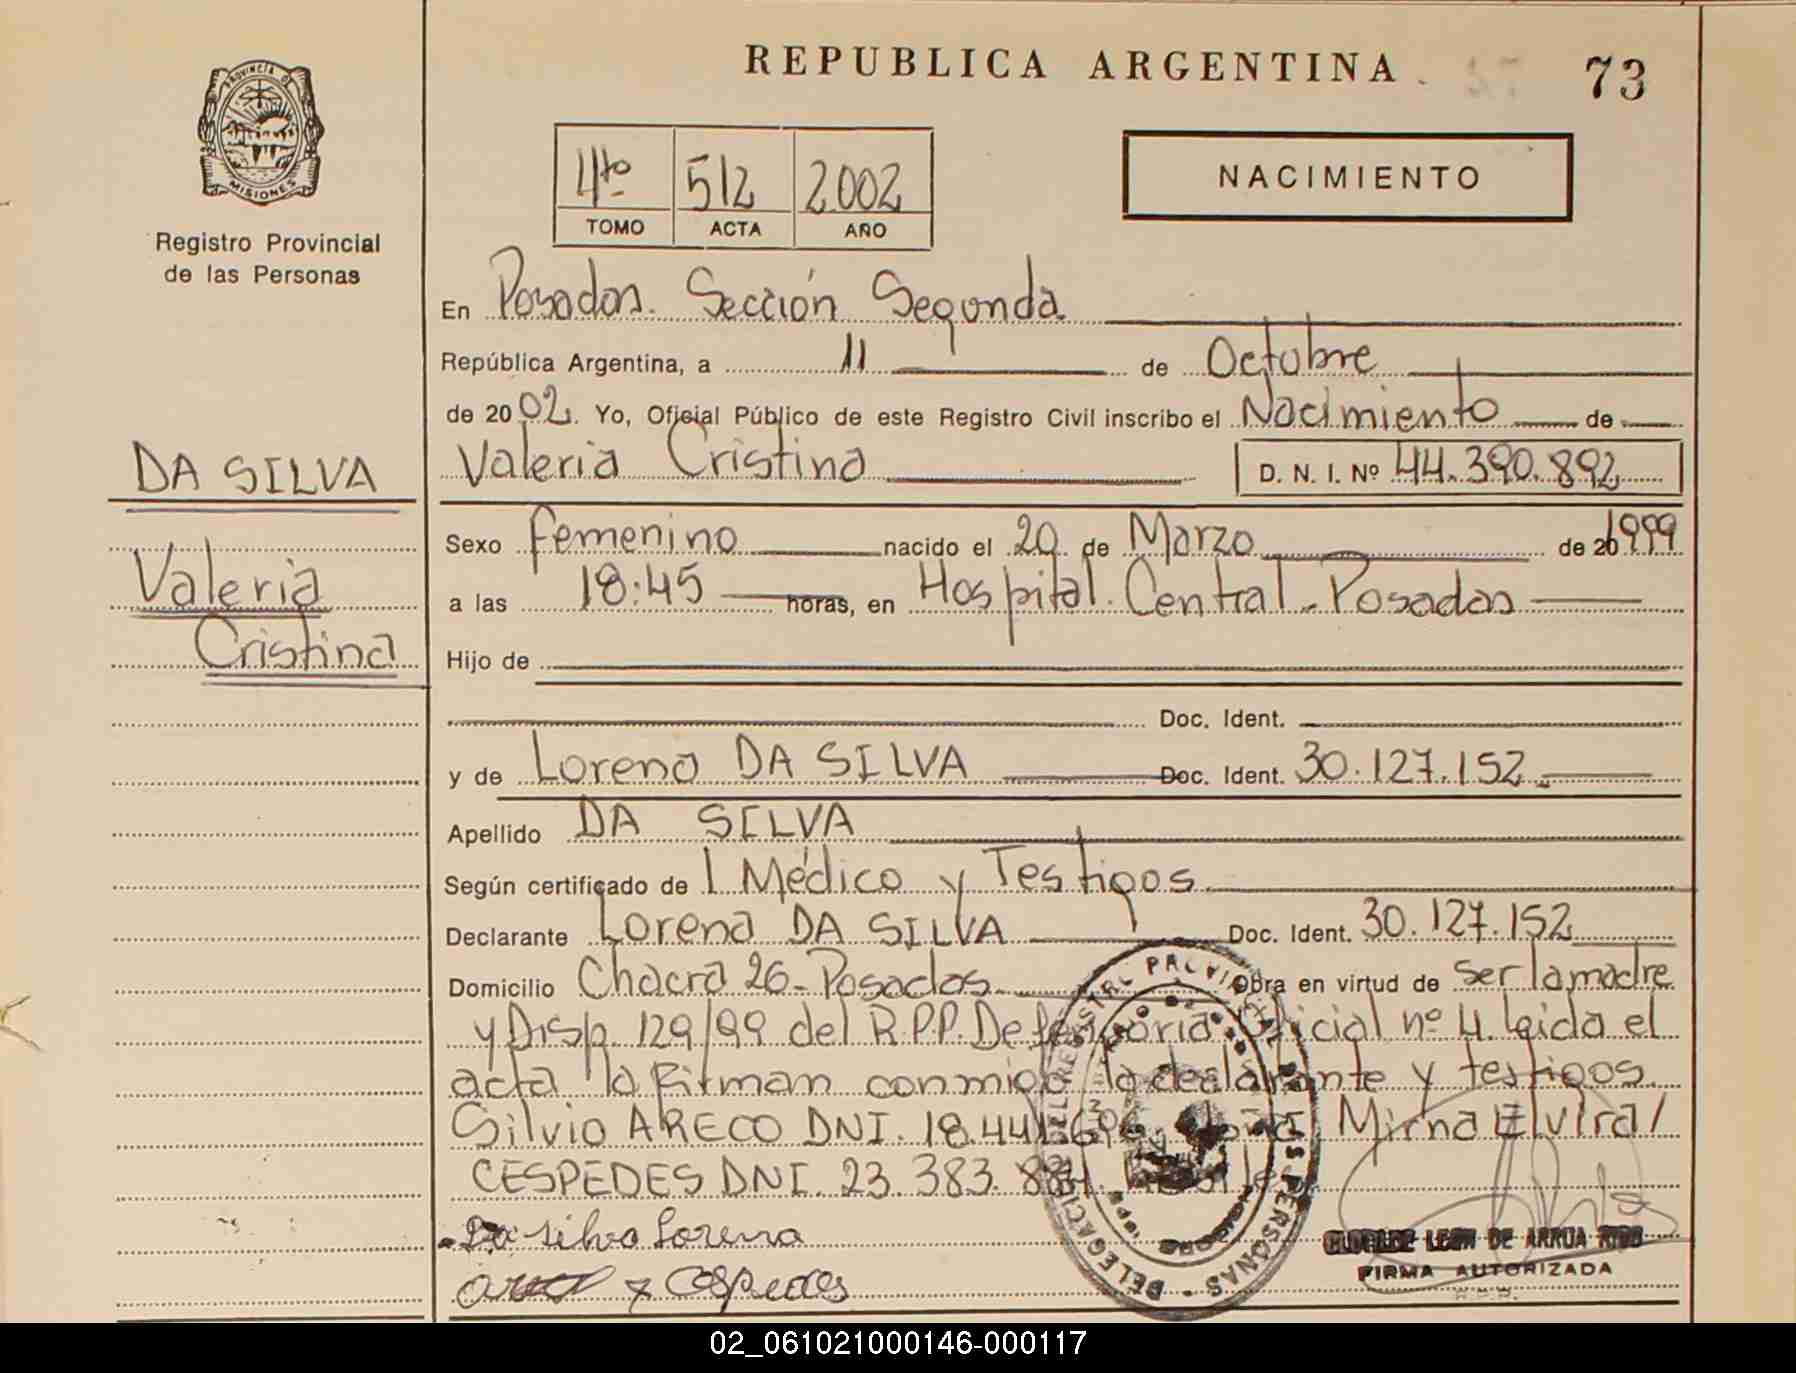 REPUBLICA ARGENTINA
73
PROVINCIA DE
MISIONES
Registro Provincial
de las Personas
4to 512 2002
TOMO ACTA AÑO
NACIMIENTO
En Posadas. Sección Segunda
República Argentina, a 11 de Octubre
de 2002. Yo, Oficial Público de este Registro Civil inscribo el Nacimiento de
Valeria Cristina D. N. I. Nº 44.390.892
DA SILVA
Valeria
Cristina
Sexo femenino nacido el 20 de Marzo de 20 1999
a las 18:45 horas, en Hospital Central - Posadas
Hijo de
Doc. Ident.
y de Lorena DA SILVA Doc. Ident. 30.127.152
Apellido DA SILVA
Según certificado de 1 Médico y Testigos
Declarante Lorena DA SILVA Doc. Ident. 30.127.152
Domicilio Chacra 26 - Posadas Obra en virtud de ser la madre
y Disp. 129/99 del R.P.P. Defensoria Oficial nº 4. Leida el
acta la firman conmigo la declarante y testigos
Silvio ARECO DNI. 18.441. Mirna Elvira/
CESPEDES DNI. 23.383.884.
Da silva Lorena
Cespedes
DELEGACION DEL REGISTRO PROVINCIAL DE LAS PERSONAS
LEON DE ARRUA
FIRMA AUTORIZADA
R.P.P.
02_061021000146-000117